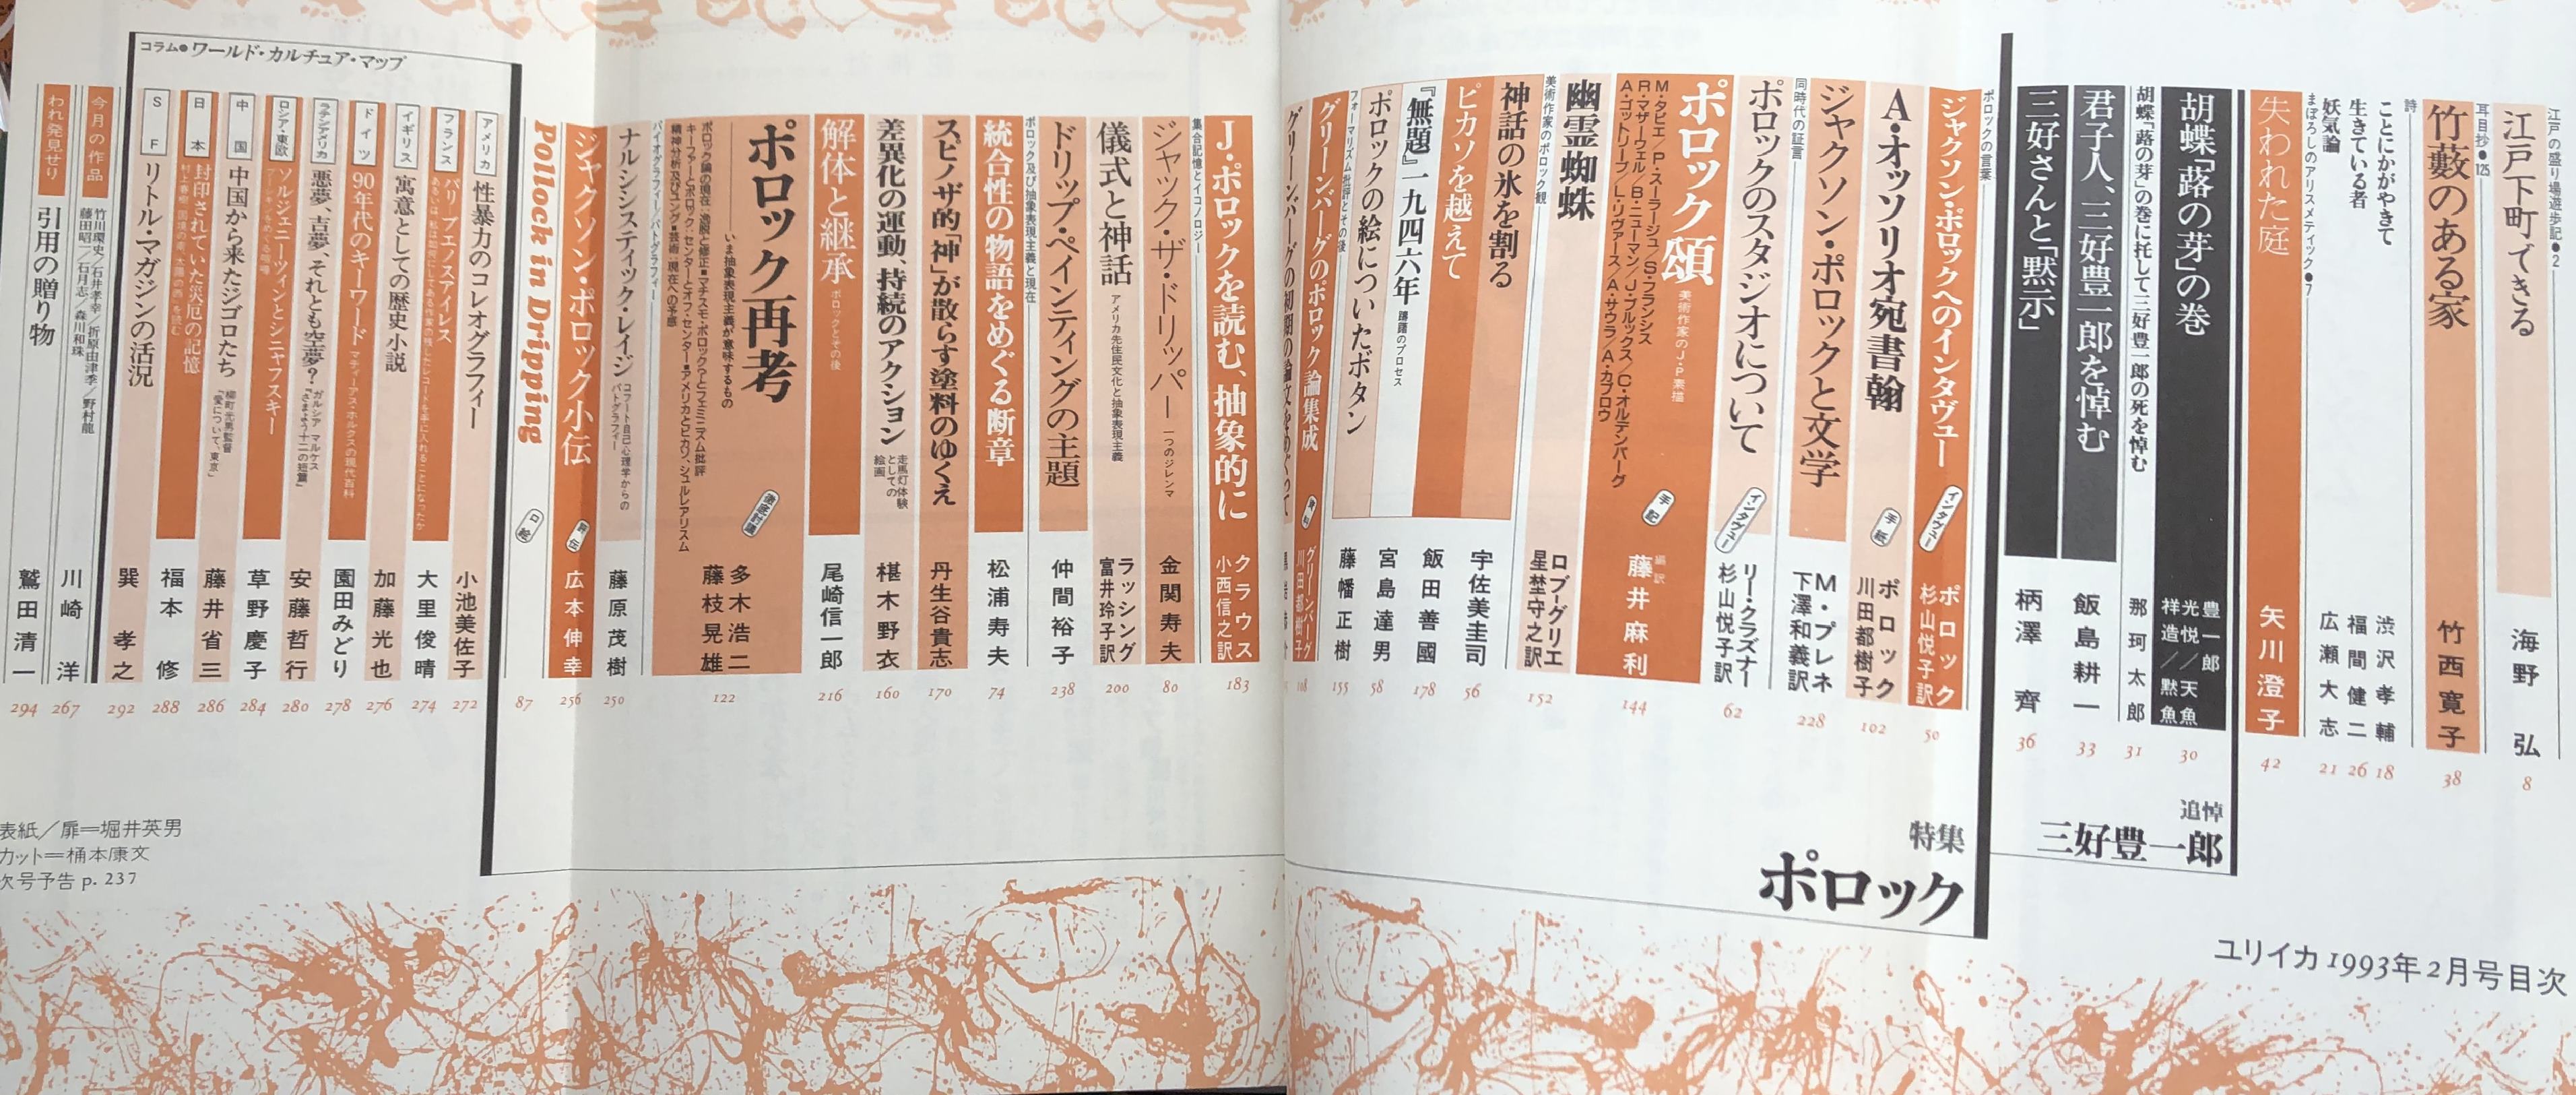 江戸の盛り場遊歩記●2
江戸下町できる
海野 弘
8
耳目抄●125
竹藪のある家
竹西寛子
38
詩
ことにかがやきて
渋沢孝輔
18
生きている者
福間健二
26
妖気論
広瀬大志
21
まぼろしのアリスメティック●7
失われた庭
矢川澄子
42
胡蝶「蕗の芽」の巻
豊一郎
光悦/天魚
祥造/黙魚
30
胡蝶「蕗の芽」の巻に托して三好豊一郎の死を悼む
那珂太郎
31
君子人、三好豊一郎を悼む
飯島耕一
33
三好さんと「黙示」
柄澤 齊
36
追悼
三好豊一郎
特集
ポロック
ポロックの言葉
ジャクソン・ポロックへのインタヴュー
インタヴュー
ポロック
杉山悦子訳
50
A・オッソリオ宛書翰
手紙
ポロック
川田都樹子
102
ジャクソン・ポロックと文学
M・プレネ
下澤和義訳
228
同時代の証言
ポロックのスタジオについて
インタヴュー
リー・クラズナー
杉山悦子訳
62
ポロック頌
美術作家のJ・P素描
M・タピエ/P・スーラージュ/S・フランシス
R・マザーウェル/B・ニューマン/J・ブルックス/C・オルデンバーグ
A・ゴットリーブ/L・リヴァース/A・サウラ/A・カプロウ
手記
編訳
藤井麻利
144
幽霊蜘蛛
ロブ=グリエ
星埜守之訳
152
美術作家のポロック観
神話の氷を割る
宇佐美圭司
56
ピカソを越えて
飯田善國
178
『無題』一九四六年
躊躇のプロセス
宮島達男
58
ポロックの絵についたボタン
藤幡正樹
155
フォーマリズム批評とその後
グリーンバーグのポロック論集成
グリーンバーグ
川田都樹子
108
グリーンバーグの初期の論文をめぐって
J・ポロックを読む、抽象的に
クラウス
小西信之訳
183
集合記憶とイコノロジー
ジャック・ザ・ドリッパー
一つのジレンマ
金関寿夫
80
儀式と神話
アメリカ先住民文化と抽象表現主義
ラッシング
富井玲子訳
200
ドリップ・ペインティングの主題
仲間裕子
238
ポロック及び抽象表現主義と現在
統合性の物語をめぐる断章
松浦寿夫
74
スピノザ的「神」が散らす塗料のゆくえ
丹生谷貴志
170
差異化の運動、持続のアクション
走馬灯体験
としての
絵画
椹木野衣
160
解体と継承
ポロックとその後
尾崎信一郎
216
ポロック再考
いま抽象表現主義が意味するもの
徹底討議
多木浩二
藤枝晃雄
122
ポロック論の現在:逸脱と修正■マチスモ・ポロック?とフェミニズム批評
キーファーとポロック:センターとオフ・センター■アメリカとピカソ、シュルレアリスム
精神分析及びユング■芸術:現在への予感
バイオグラフィー/パトグラフィー
ナルシシスティック・レイジ
コフート自己心理学からの
パトグラフィー
藤原茂樹
250
ジャクソン・ポロック小伝
評伝
広本伸幸
256
Pollock in Dripping
口絵
87
コラム●ワールド・カルチュア・マップ
アメリカ
性暴力のコレオグラフィー
小池美佐子
272
フランス
パリ ブエノスアイレス
大里俊晴
274
イギリス
寓意としての歴史小説
加藤光也
276
ドイツ
90年代のキーワード
マティーアス・ホルクスの現代百科
園田みどり
278
ラテンアメリカ
悪夢、吉夢、それとも空夢?
ガルシア マルケス
『さまよう十二の短篇』
安藤哲行
280
ロシア・東欧
ソルジェニーツィンとシニャフスキー
プーシキンをめぐる喧嘩
草野慶子
284
中国
中国から来たジゴロたち
柳町光男監督
『愛について、東京』
藤井省三
286
日本
封印されていた災厄の記憶
村上春樹『国境の南、太陽の西』を読む
福本 修
288
SF
リトル・マガジンの活況
巽 孝之
292
今月の作品
竹川環史/石井孝幸/折原由津季/野村龍
藤田昭一/石月志/森川和珠
川崎 洋
267
われ発見せり
引用の贈り物
鷲田清一
294
表紙/扉=堀井英男
カット=桶本康文
次号予告 p. 237
ユリイカ 1993年2月号目次